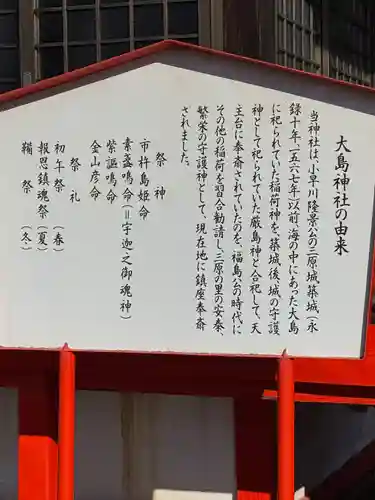 大島神社の由来
当神社は、小早川隆景公の三原城築城(永
録十年、一五六七年)以前、海の中にあった大島
に祀られていた稲荷神を、築城後城の守護
神として祀られていた厳島神と合祀して、天
主台に奉斎されていたのを、福島公の時代に
その他の稲荷を習合勧請し、三原の里の安泰、
繁栄の守護神として、現在地に鎮座奉斎
されました。
祭神
市杵島姫命
素盞鳴命(=宇迦之御魂神)
紫謳鳴命
金山彦命
祭礼
初午祭(春)
報恩鎮魂祭(夏)
鞴祭(冬)